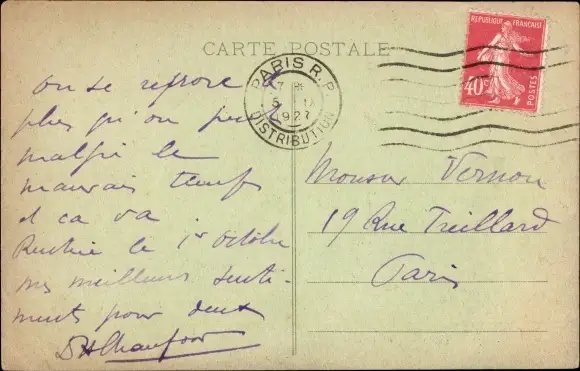 CARTE POSTALE
REPUBLIQUE FRANÇAISE
40c
POSTES
PARIS R.P.
1927
DISTRIBUTION
on se repose le
plus qu'on peut
malgré le
mauvais temps
et ca va
Rentrée le 1er octobre
mes meilleurs senti-
ments pour deux
Monsieur Vernon
19 Rue Treillard
Paris